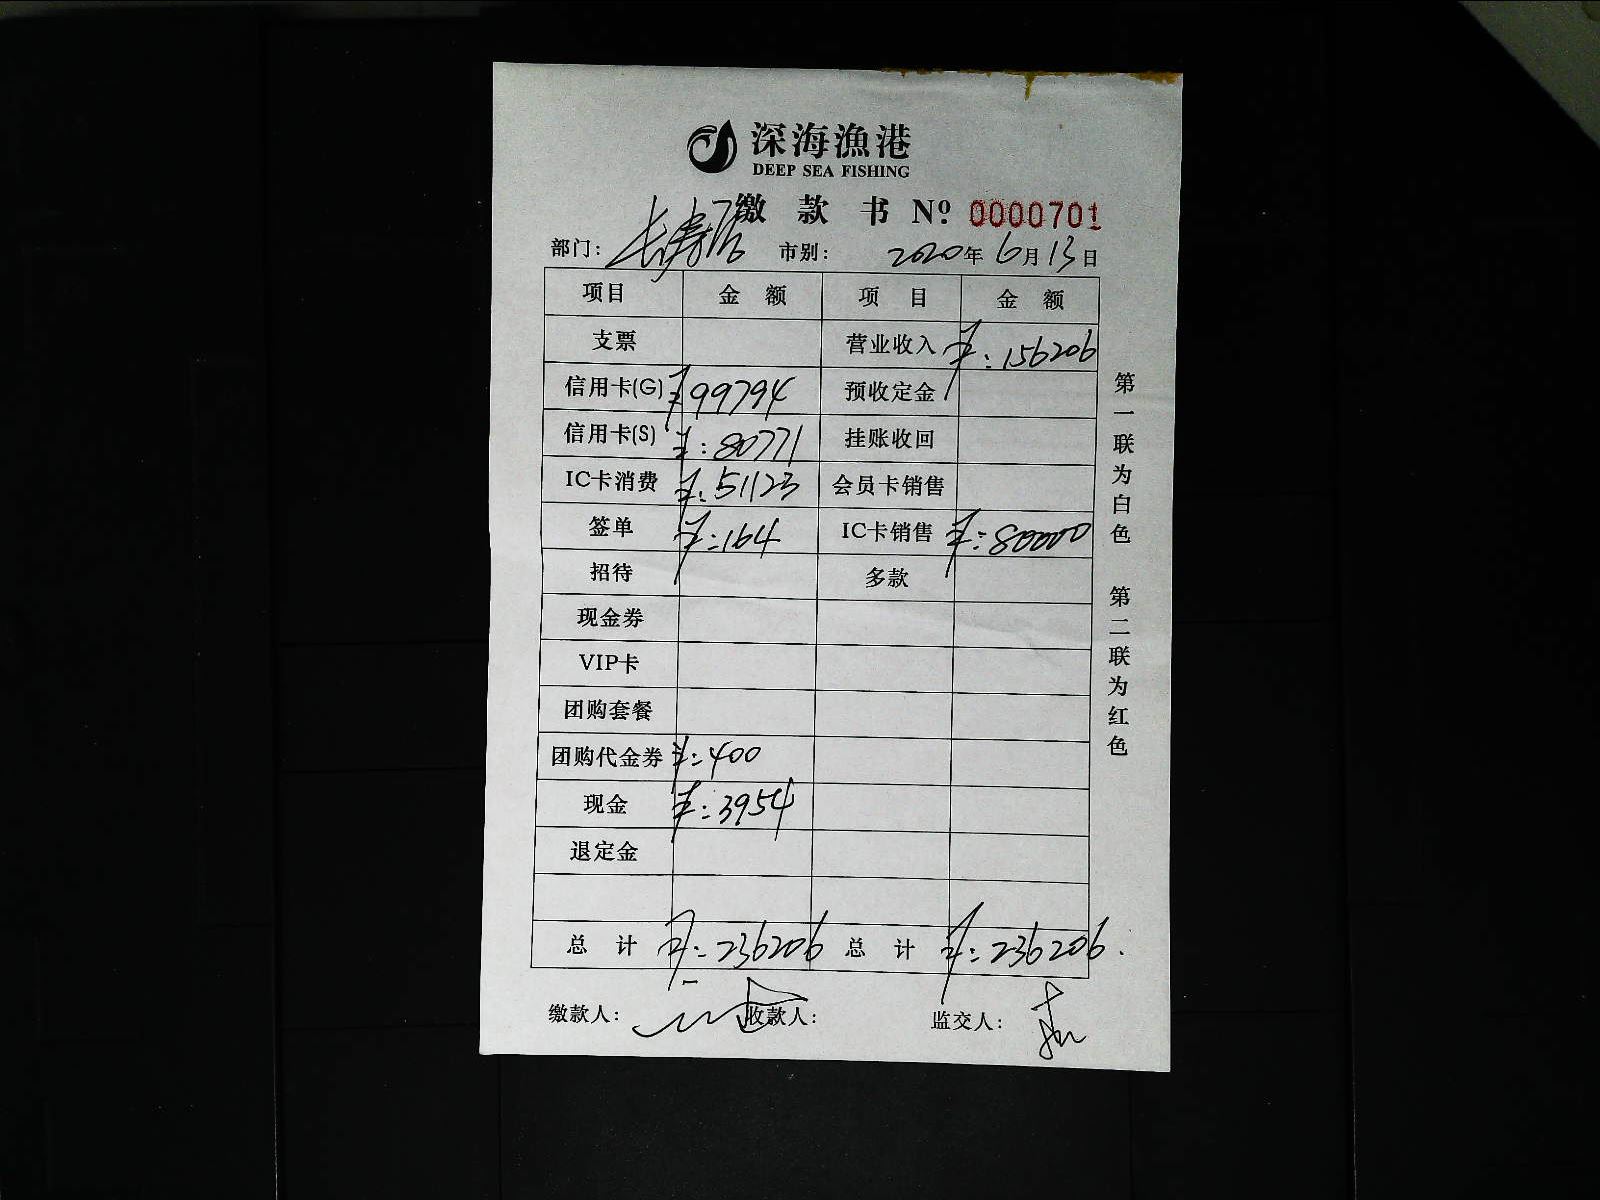 深海渔港
DEEP SEA FISHING
缴款书 Nº 0000701
部门: 长寿店 市别: 2020年6月13日
项目 金额 项目 金额
支票 营业收入 ¥:156206
信用卡(G) ¥99794 预收定金
信用卡(S) ¥:80771 挂账收回
IC卡消费 ¥:51123 会员卡销售
签单 ¥:164 IC卡销售 ¥:80000
招待 多款
现金券
VIP卡
团购套餐
团购代金券 ¥:400
现金 ¥:3954
退定金
总计 ¥:236206 总计 ¥:236206.
缴款人: 收款人: 监交人:
第一联为白色 第二联为红色